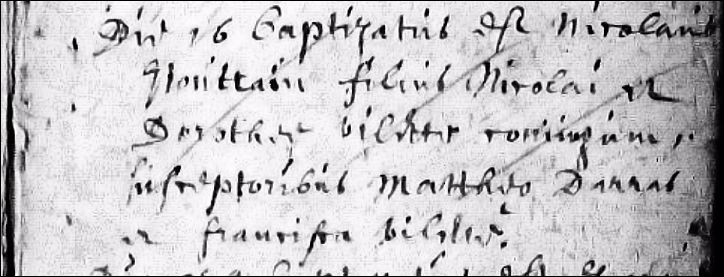 Die 16 baptizatus est Nicolaus
Houttain filius Nicolai et
Dorotheæ bilitte coniugum,
susceptoribus Mattheo Darras
et francisca bilitte.